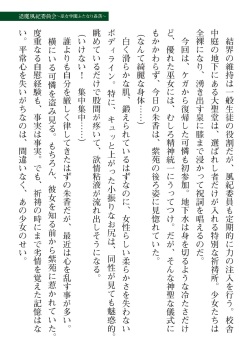 退魔風紀委員会～巫女学園ふたなり姦落～
結界の維持は一般生徒の役割だが、風紀委員も定期的に力の注入を行う。校舎
中庭の地下にある大聖堂は、選ばれし者だけが入れる特別な祈祷所。少女たちは
全裸になり、湧き出す泉に膝まで浸かって祝詞を唱えるのだ。
今回は、ケガから復帰した可憐も初参加。地下水は身を切るような冷たさだけ
ど、優れた巫女には、むしろ精神統一にうってつけ。だが、そんな神聖な儀式に
もかかわらず、今日の朱香は、紫苑の後ろ姿に見惚れていた。
（なんて綺麗な身体……）
白く滑らかな肌。鍛えられているはずなのに、女性らしい柔らかさを失わない
ボディライン。特に、キュッと上がった小振りなお尻は、同性が見ても魅惑的。
眺めているだけで股間が疼いて、欲情粘液が流れ出しそうになる。
（いけない！　集中集中……）
誰よりも自分を厳しく律してきたはずの朱香だが、最近は心を乱す事が多い。
横にいる可憐を盗み見る。もちろん、彼女を知る前から紫苑に惹かれていた。
度重なる自慰経験も、事実は事実。でも、祈祷の時にまで劣情を覚えた記憶はな
い。平常心を失いがちなのは、間違いなく、あの少女のせい。